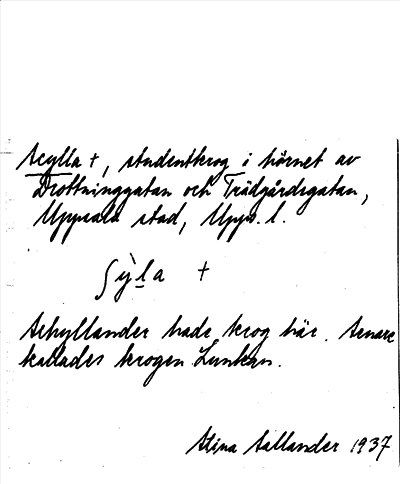 Scylla +, studentkrog i hörnet av
Drottninggatan och Trädgårdsgatan,
Uppsala stad, Upps. l.
ʃỳla +
Schyllander hade krog här. Senare
kallades krogen Lunkan.
Stina Sallander 1937